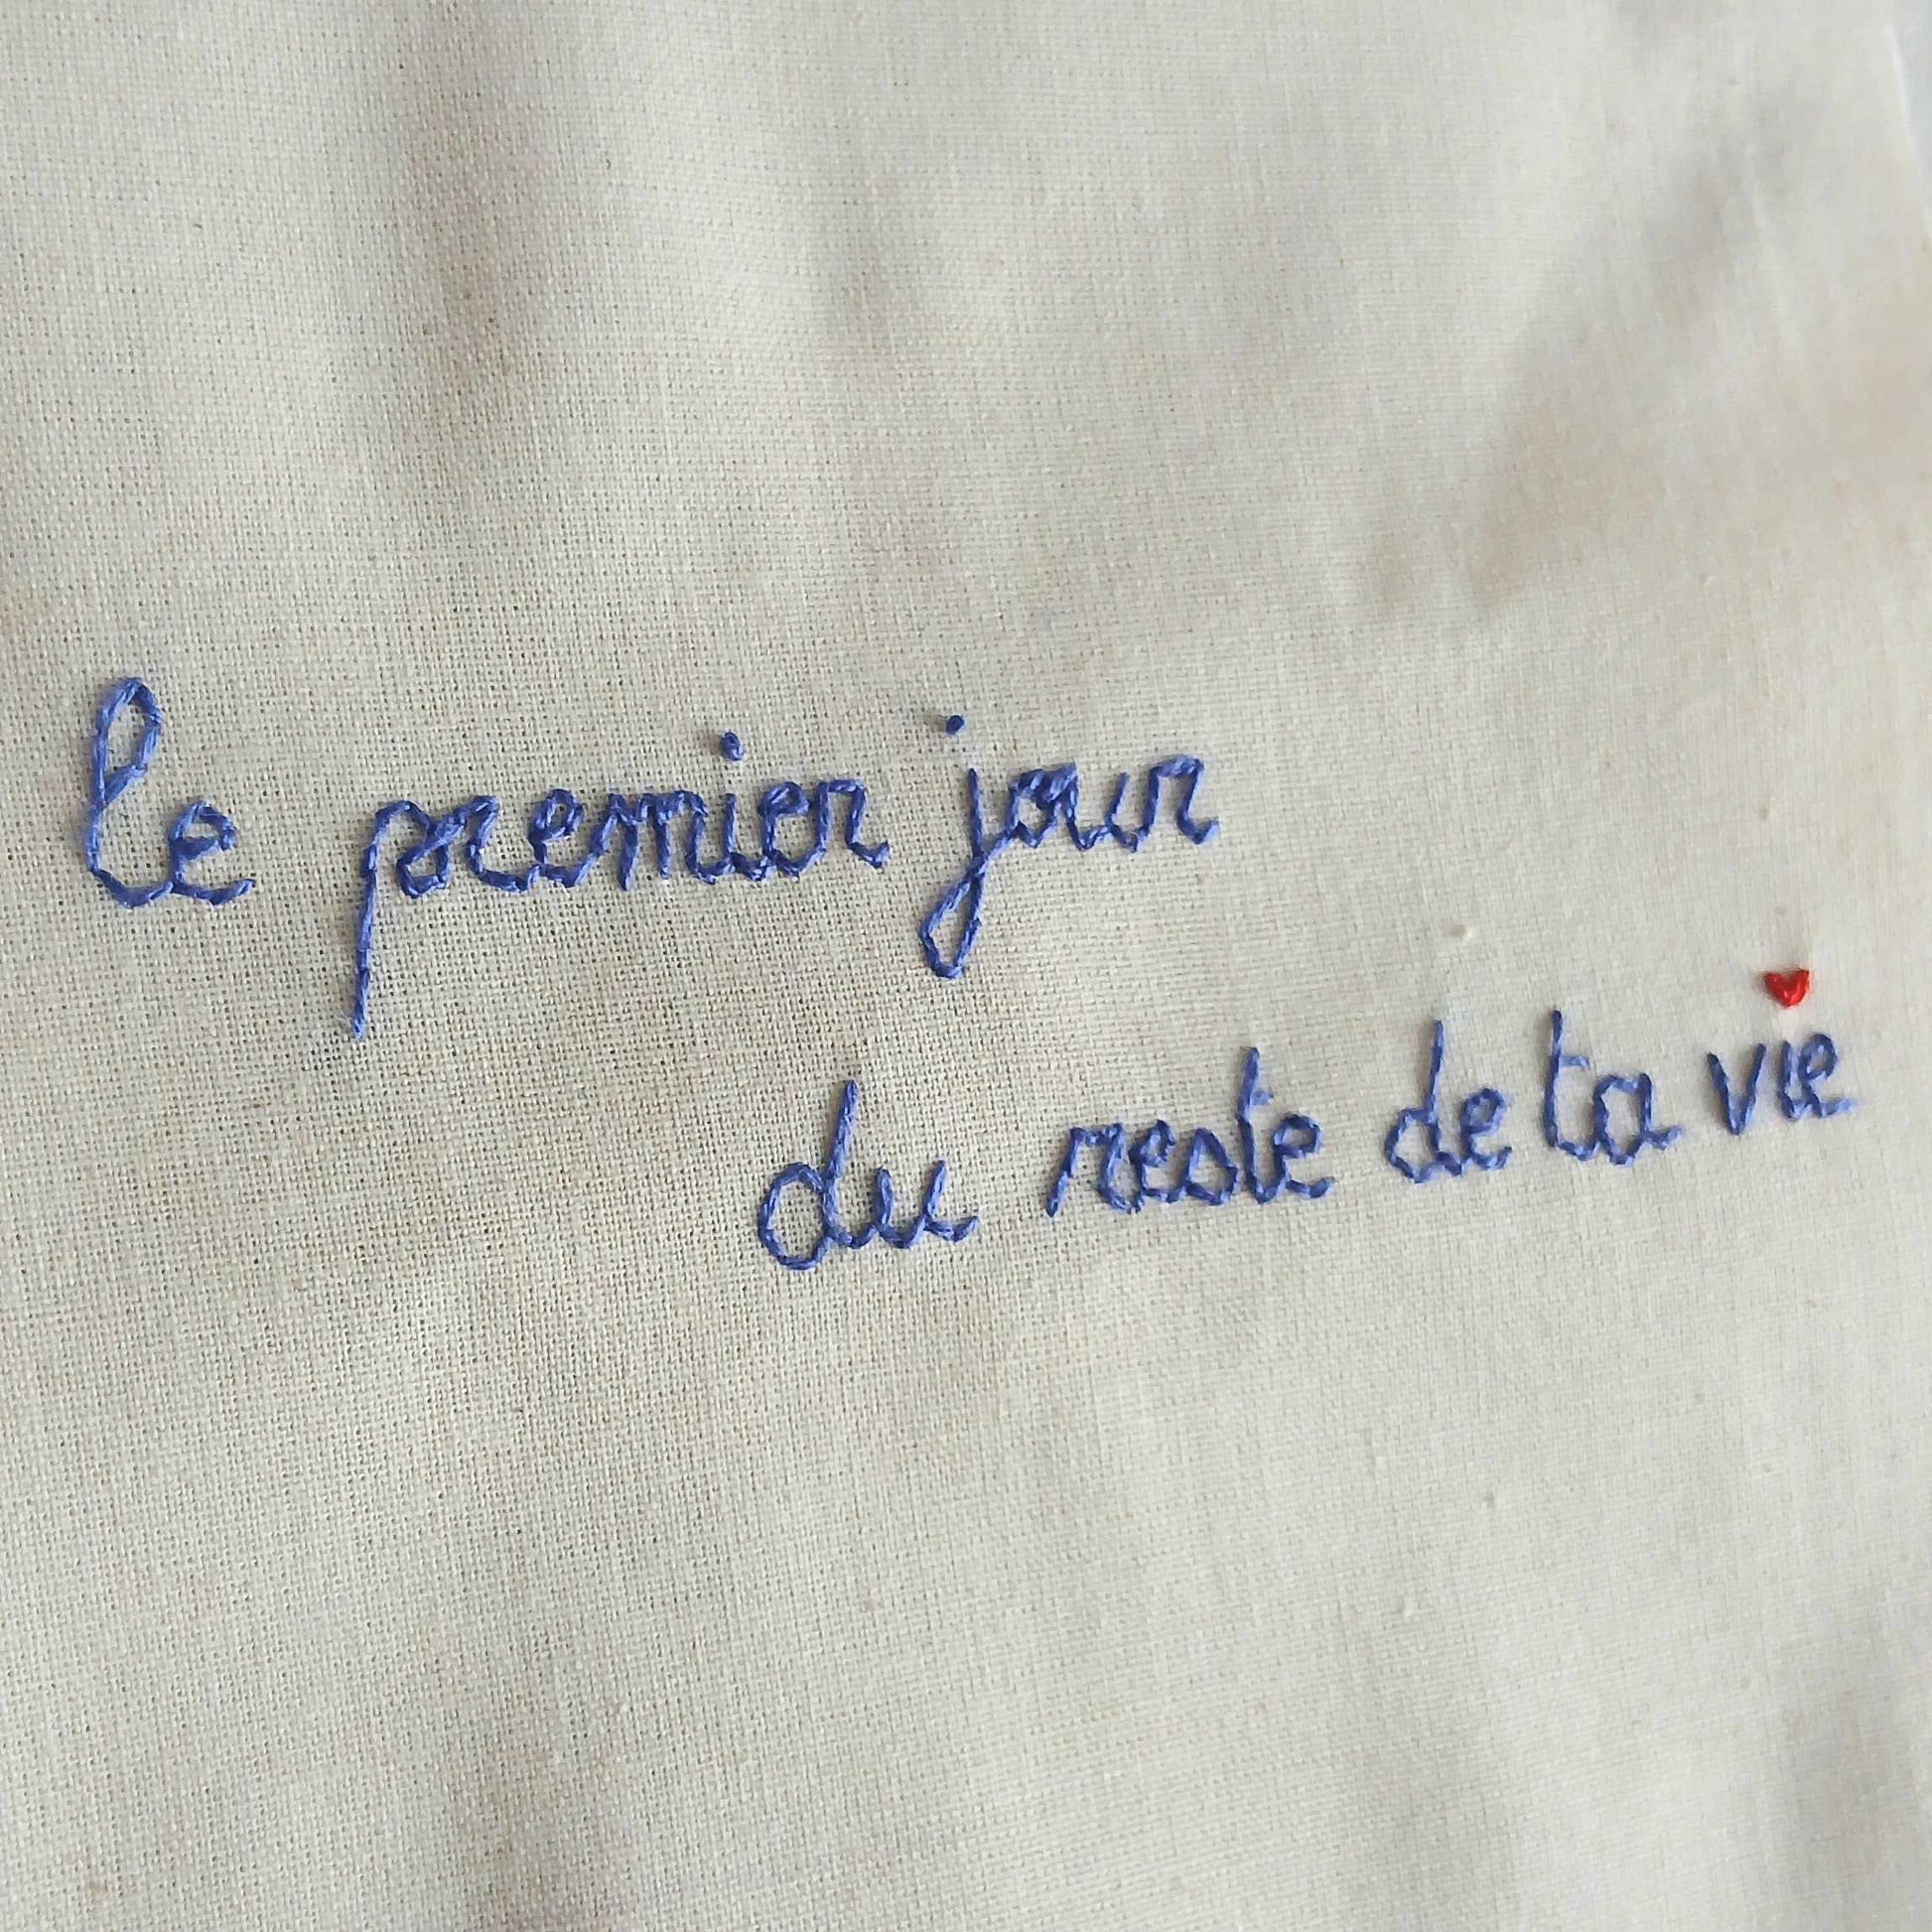 le premier jour
du reste de ta vie